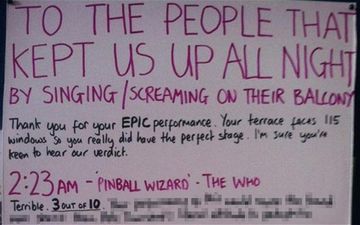 TO THE PEOPLE THAT
KEPT US UP ALL NIGHT
BY SINGING/SCREAMING ON THEIR BALCONY
Thank you for your EPIC performance. Your terrace faces 115
windows so you really did have the perfect stage. I'm sure you're
keen to hear our verdict.
2:23AM - 'PINBALL WIZARD' - THE WHO
Terrible. 3 OUT OF 10.